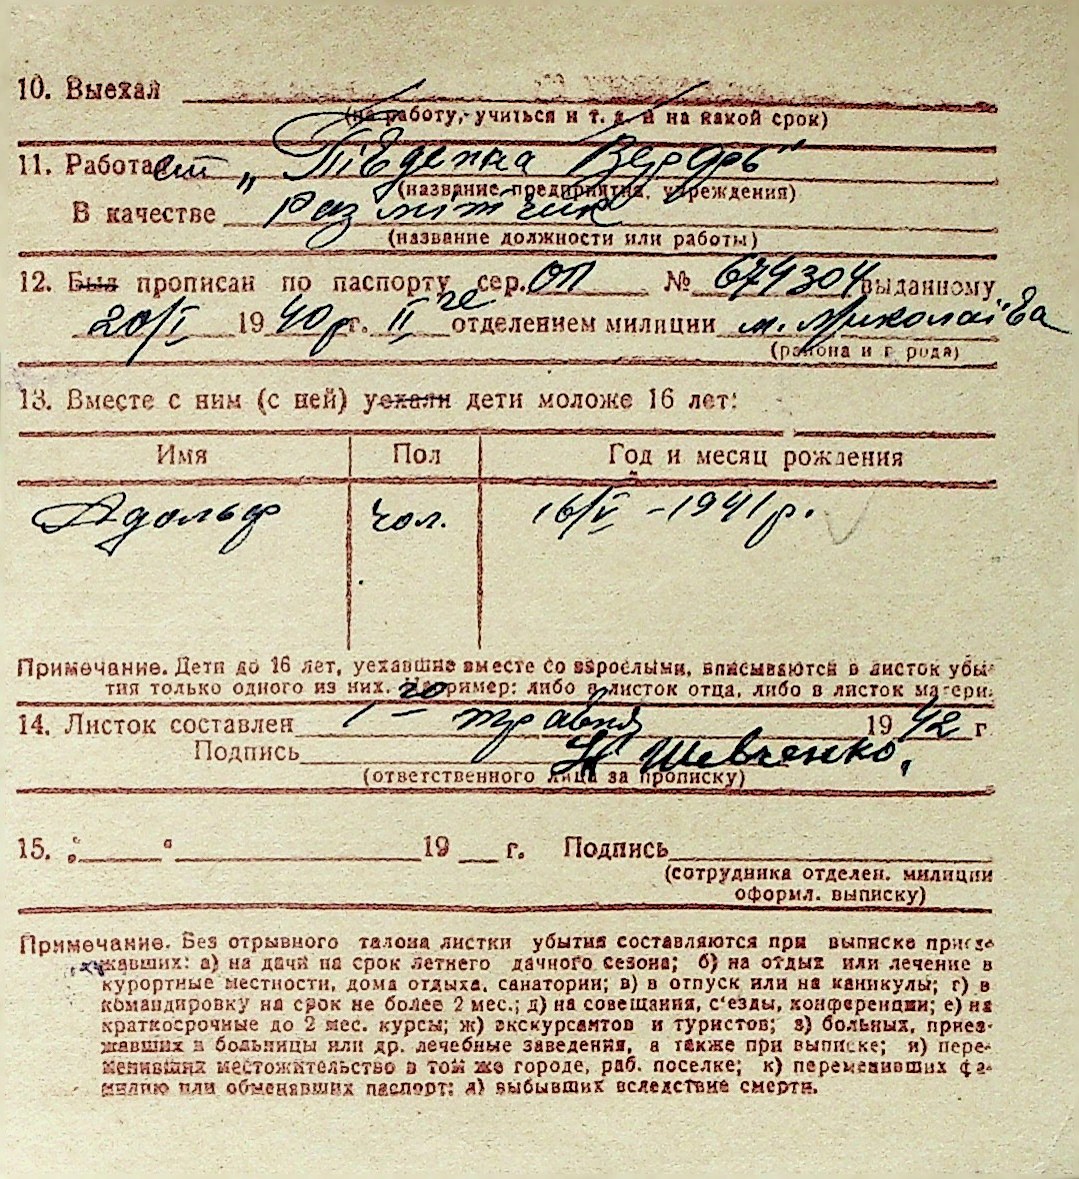 10. Выехал
(на работу, учиться и т. д. и на какой срок)
11. Работает „Південна Верфь"
(название предприятия, учреждения)
В качестве розмітчик
(название должности или работы)
12. Был прописан по паспорту сер. ОП № 674304 выданному
20/I 1940 р. г. II ге отделением милиции м. Миколаїва
(района и города)
13. Вместе с ним (с ней) уехали дети моложе 16 лет:
Имя Пол Год и месяц рождения
Адольф чол. 16/V - 1941 р.
Примечание. Дети до 16 лет, уехавшие вместе со взрослыми, вписываются в листок убы-
тия только одного из них. Например: либо в листок отца, либо в листок матери.
14. Листок составлен 1-го травня 1942 г
Подпись Шевченко
(ответственного лица за прописку)
15. „ " 19 г. Подпись
(сотрудника отделен. милиции
оформл. выписку)
Примечание. Без отрывного талона листки убытия составляются при выписке приез-
жавших: а) на дачи на срок летнего дачного сезона; б) на отдых или лечение в
курортные местности, дома отдыха, санатории; в) в отпуск или на каникулы; г) в
командировку на срок не более 2 мес.; д) на совещания, с'езды, конференции; е) на
краткосрочные до 2 мес. курсы; ж) экскурсантов и туристов; з) больных, приез-
жавших в больницы или др. лечебные заведения, а также при выписке; и) пере-
менивших местожительство в том же городе, раб. поселке; к) переменивших фа-
милию или обменявших паспорт; л) выбывших вследствие смерти.